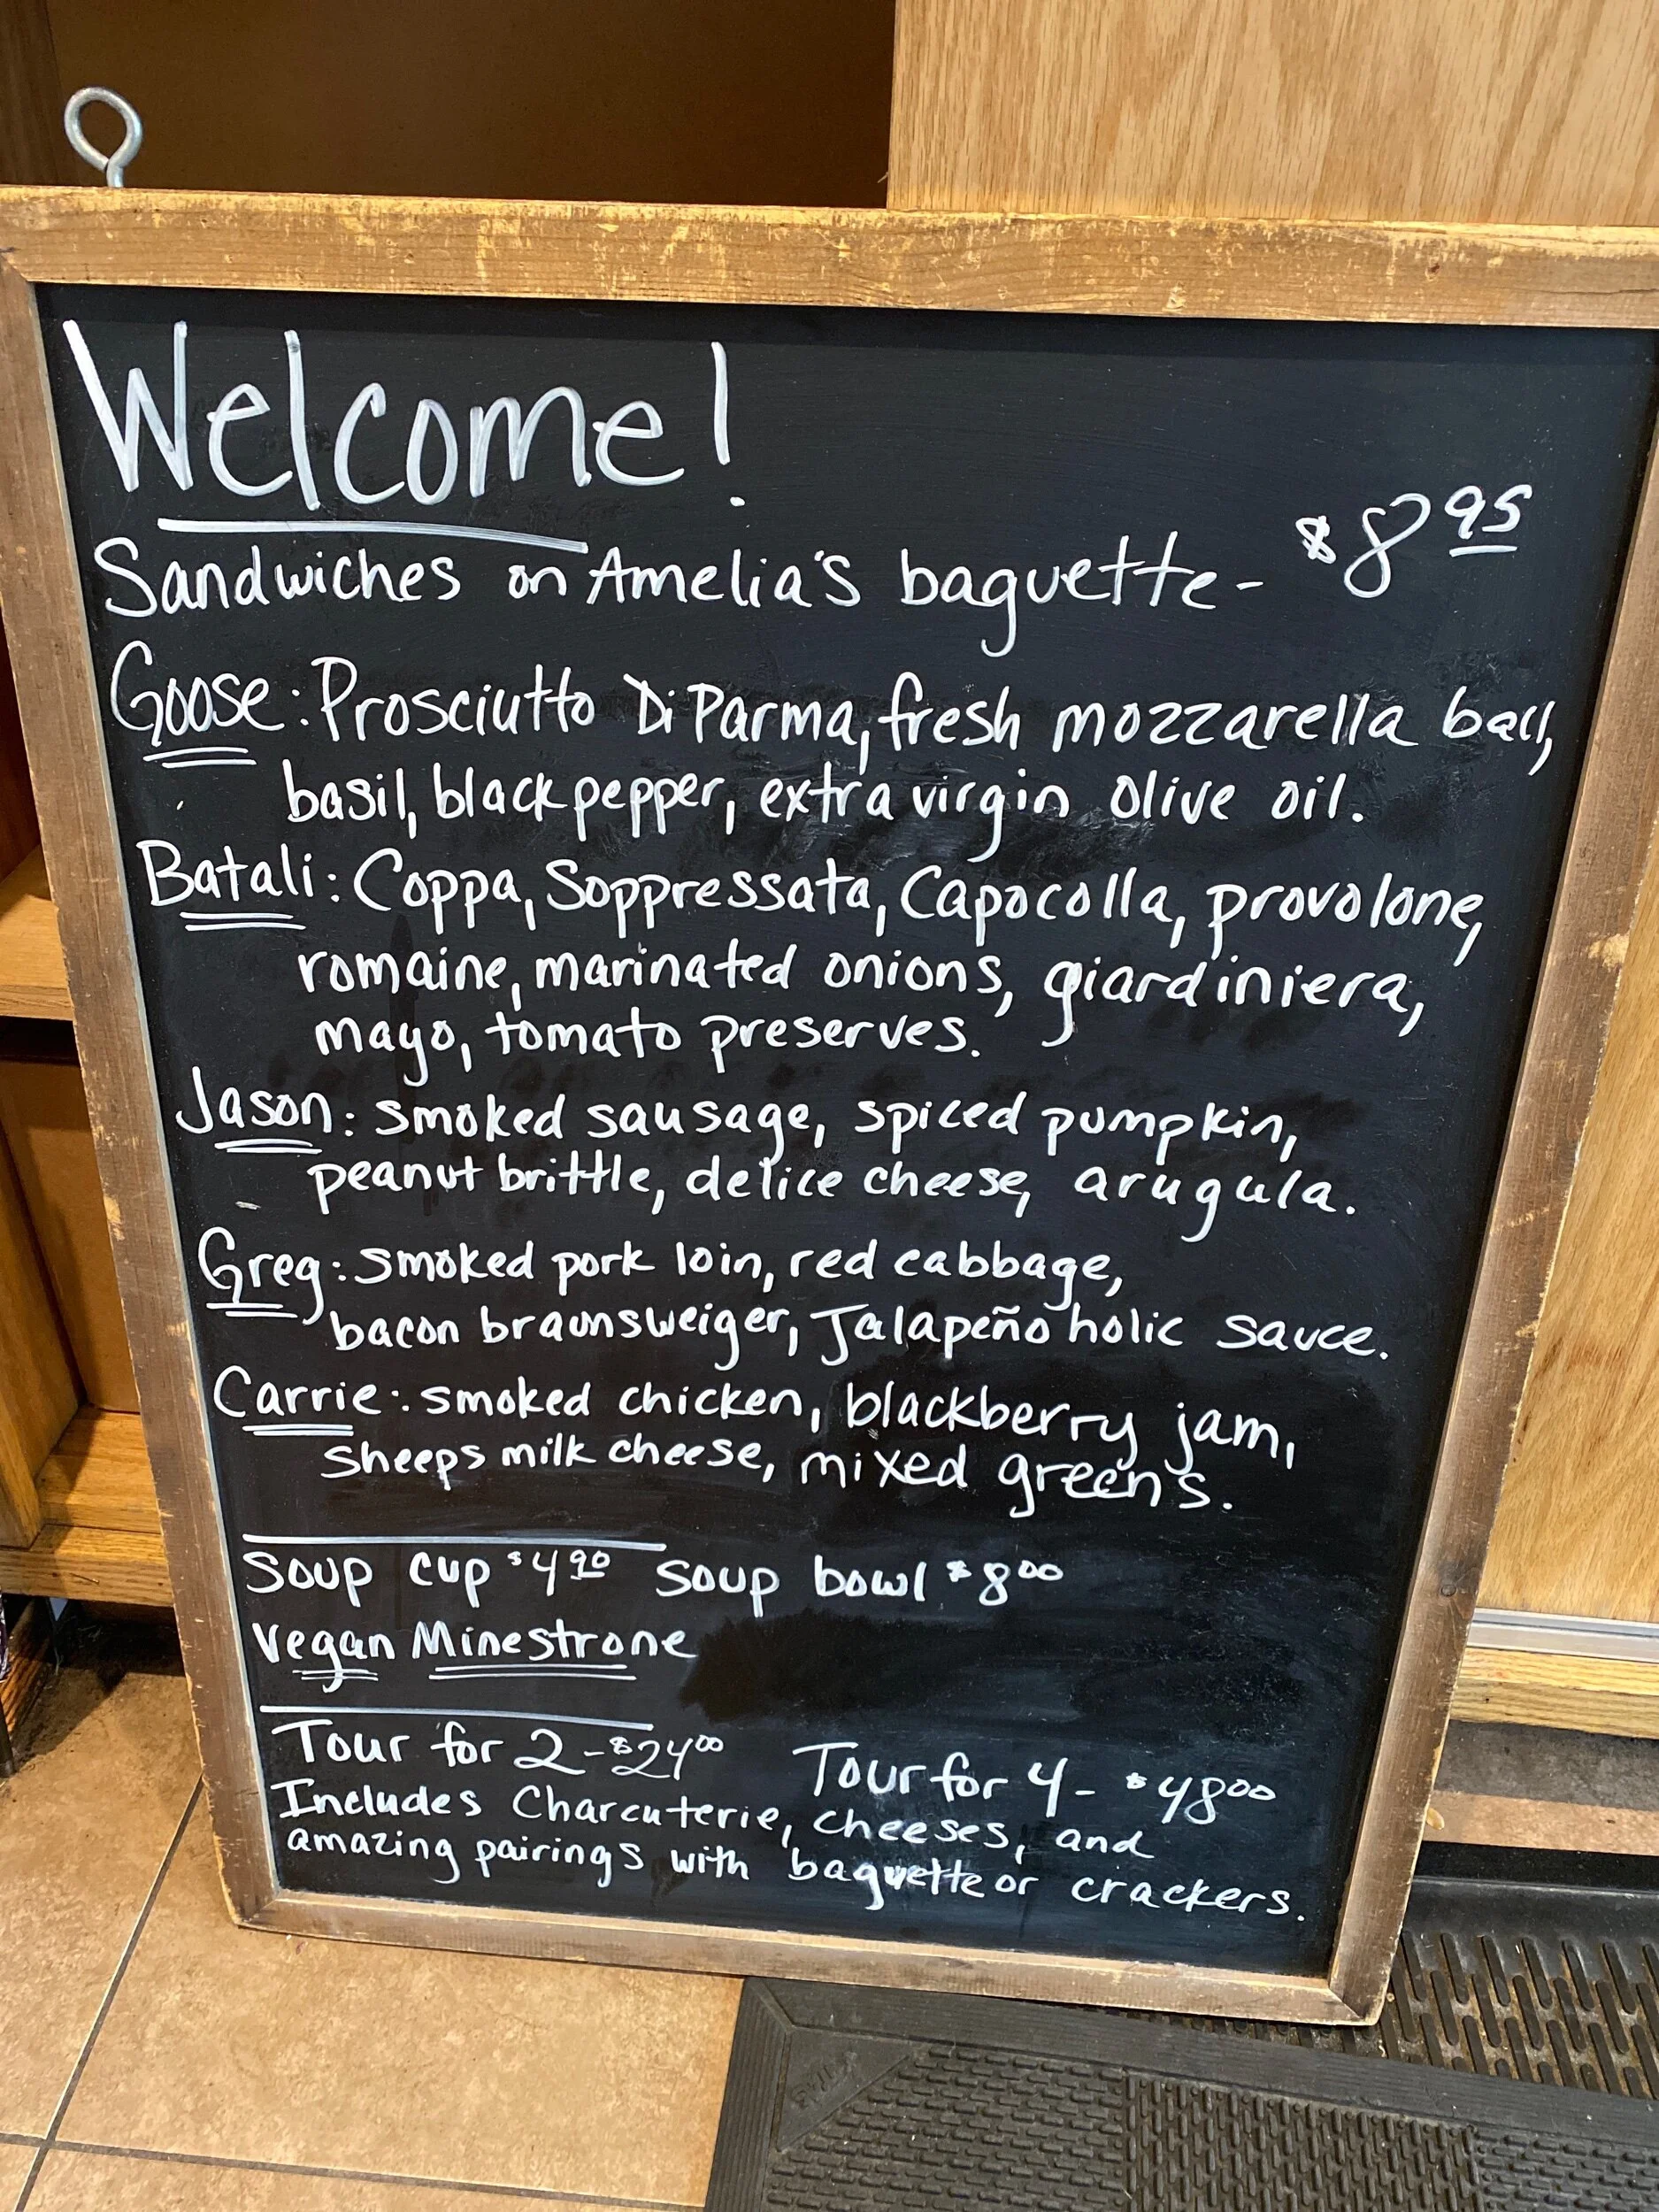 Welcome!
Sandwiches on Amelia's baguette - $8.95
Goose: Prosciutto Di Parma, fresh mozzarella ball,
basil, black pepper, extra virgin olive oil.
Batali: Coppa, Soppressata, Capocolla, provolone,
romaine, marinated onions, giardiniera,
mayo, tomato preserves.
Jason: smoked sausage, spiced pumpkin,
peanut brittle, delice cheese, arugula.
Greg: smoked pork loin, red cabbage,
bacon braunsweiger, Jalapeño holic sauce.
Carrie: smoked chicken, blackberry jam,
sheeps milk cheese, mixed greens.
Soup cup $4.90 Soup bowl $8.00
Vegan Minestrone
Tour for 2 - $24.00 Tour for 4 - $48.00
Includes Charcuterie, cheeses, and
amazing pairings with baguette or crackers.